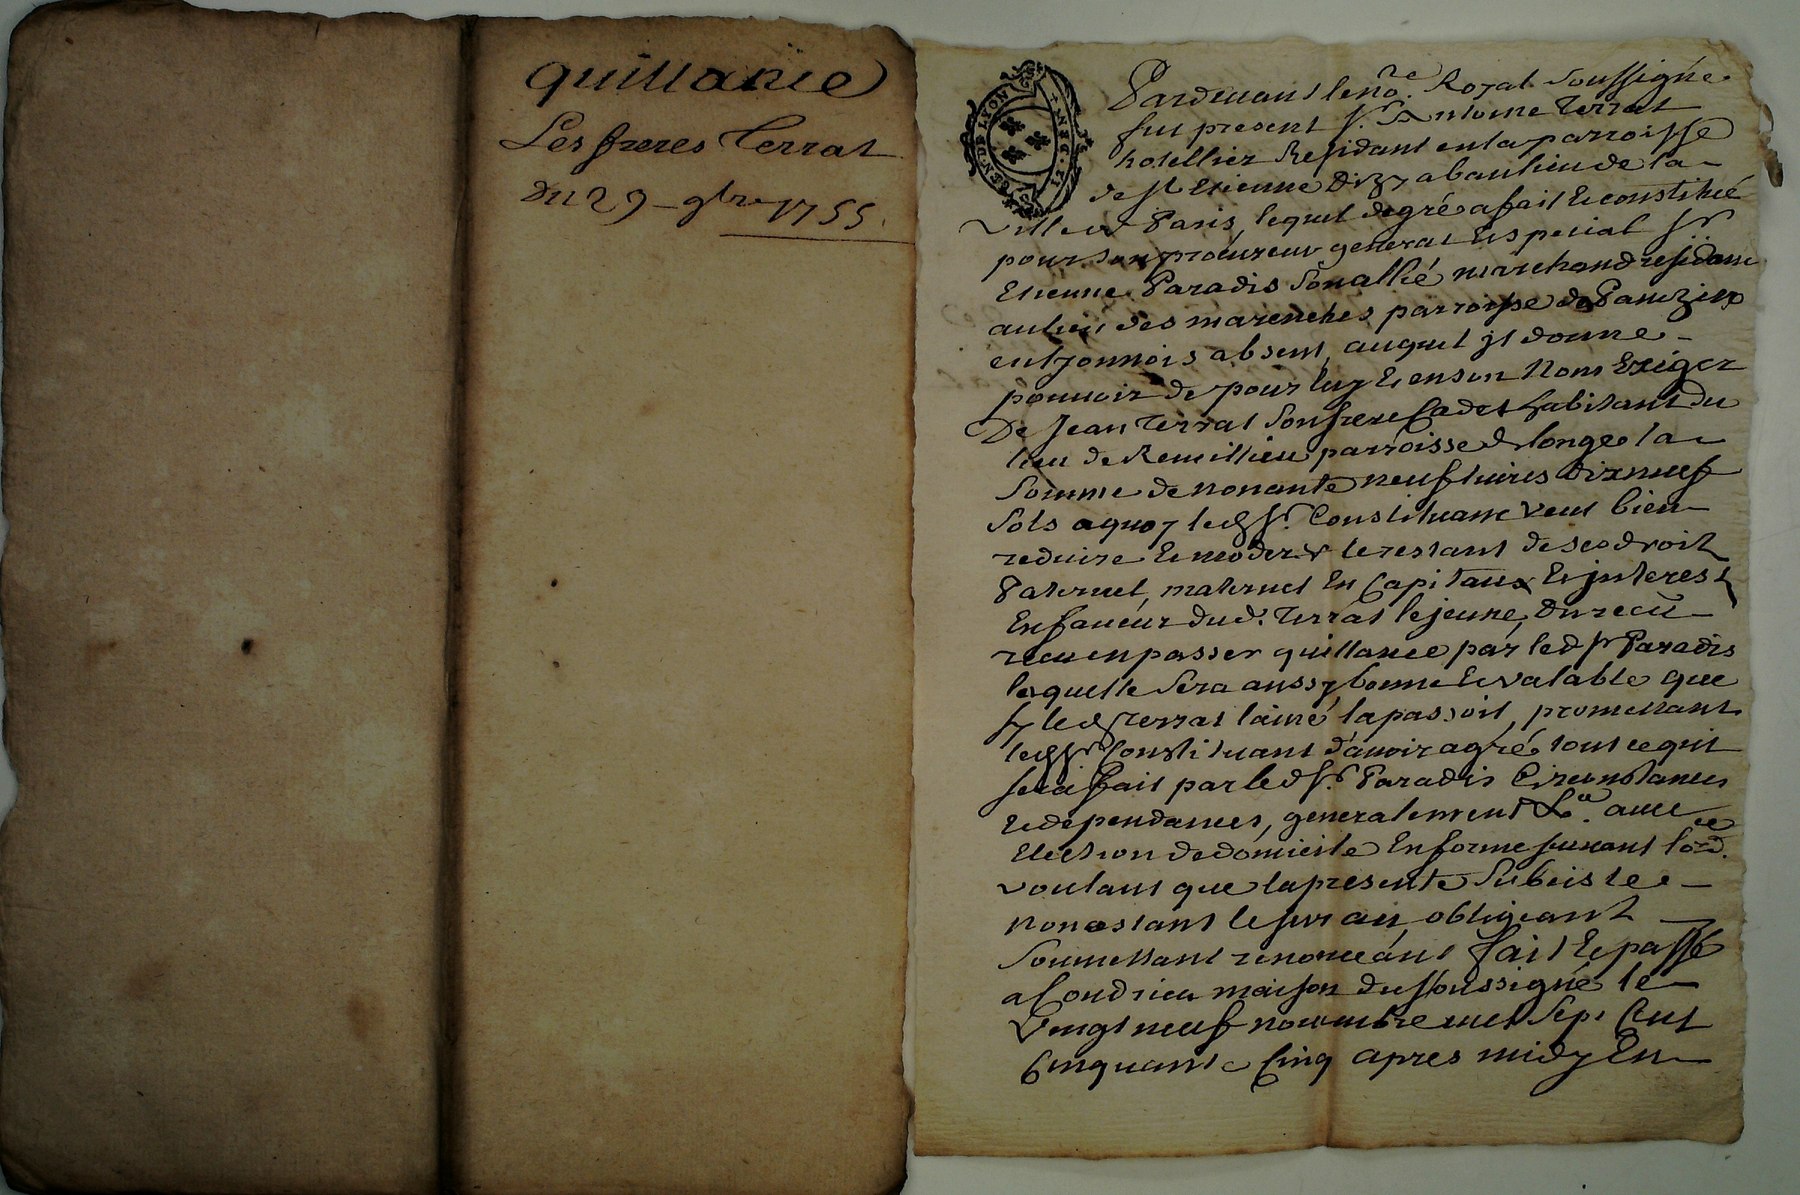 quittance
Les freres Terrat
du 29 9bre 1755.
GEN. DE LYON
Pardevant le no.re Royal soussigné
fut present Sr. Antoine Terrat
hotellier Residant en la parroisse
de St Etienne banlieu de la
ville de Paris, lequel de gré a fait et constitué
pour son procureur general et special Sr
Etienne Paradis son allié marchand residant
au lieu des marenches parroisse de
en lyonnois absent, auquel jl donne
pouvoir de pour luy et en son Nom Exiger
De Jean Terrat son frere Cadet habitant du
lieu de Remillieu parroisse de longe la
somme de nonante neuf livres dix neuf
sols a quoy led Sr. Constituant veut bien
reduire et moderer le restant de ses droits
Paternel, maternel En Capitaux et jnterests
En faveur dud. Terrat le jeune, du recu
en passer quittance par led Sr Paradis
laquelle sera aussy bonne et valable que
sy led Sr Terrat l'ainé la passoit, promettant
led Sr Constituant d'avoir agré tout ce qui
sera fait par led Sr. Paradis Circonstances
et dependances, generalement &a. avec
Election de domicile En forme suivant l'ord.ce
voulant que la presente subsiste
nonostant le suran, obligeant
soumettant renonceant fait et passé
a Condrieu maison du soussigné le
Vingt neuf novembre mil sept Cent
Cinquante Cinq apres midy En